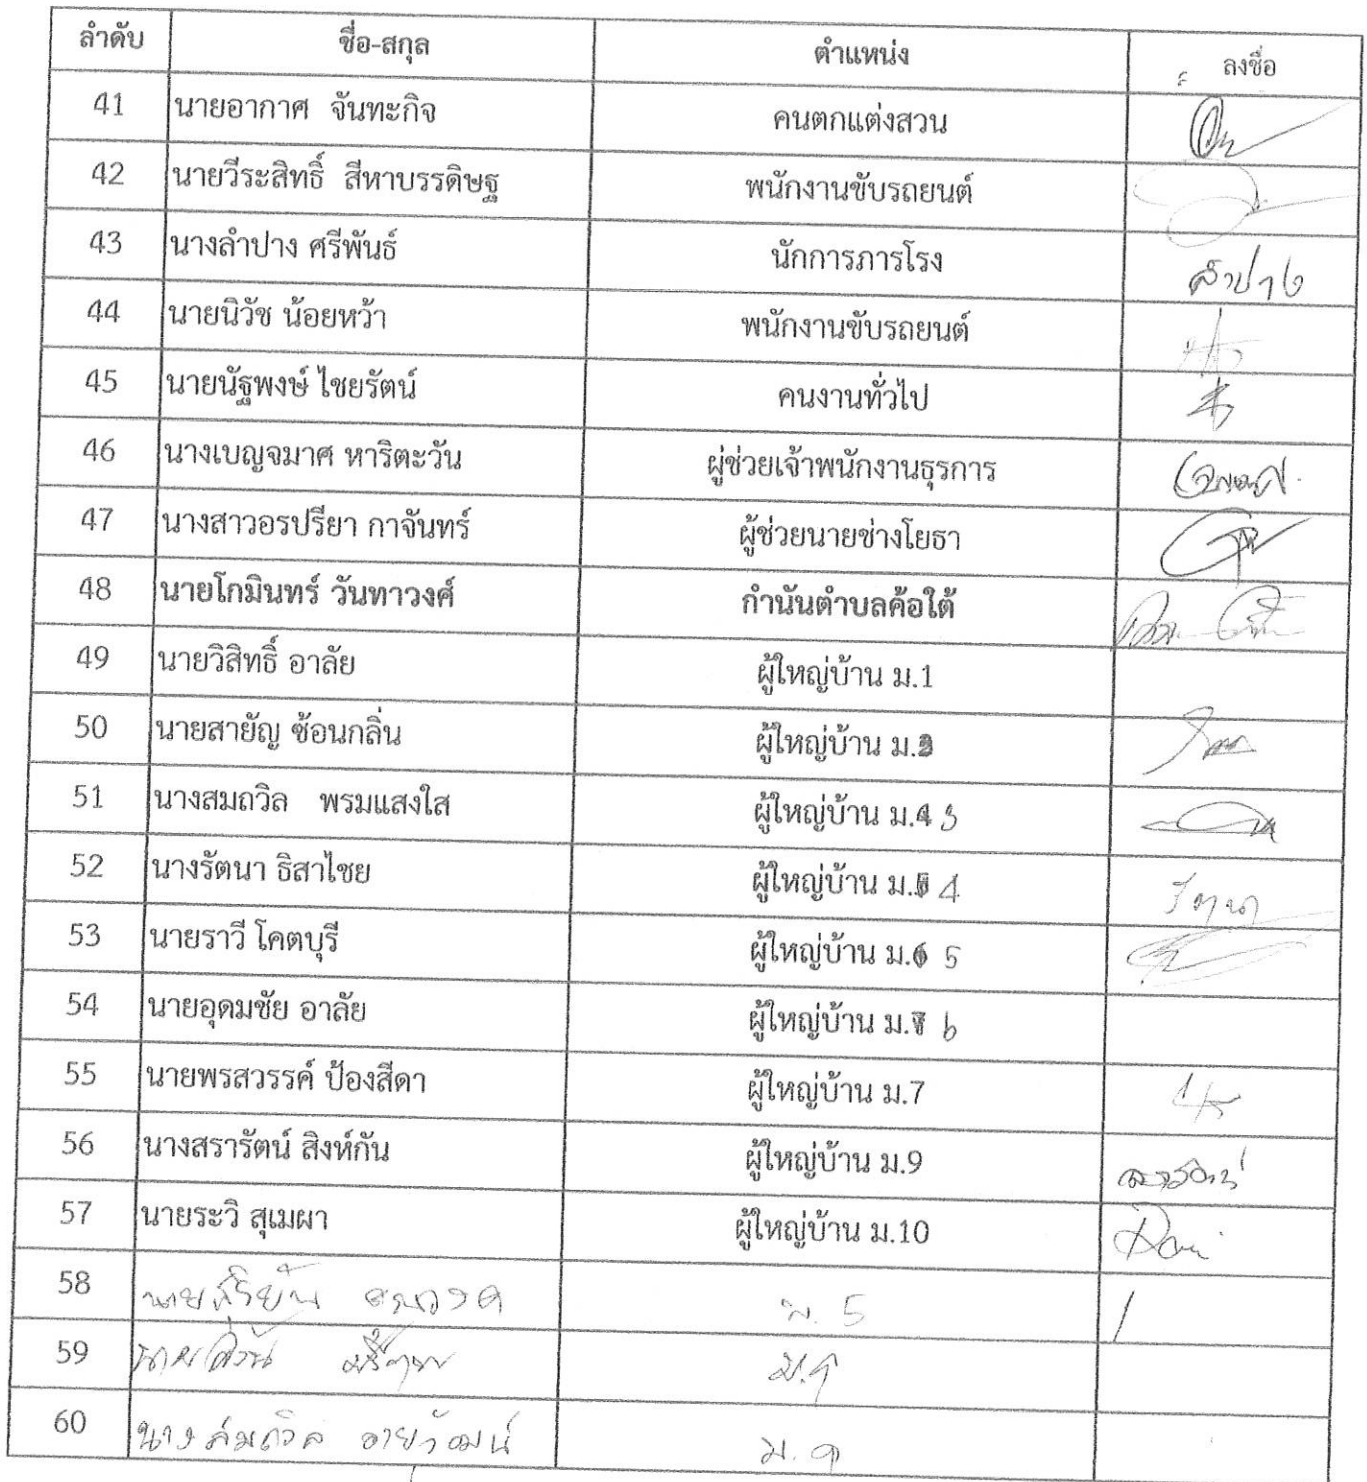 ลำดับ ชื่อ-สกุล ตำแหน่ง ลงชื่อ
41 นายอากาศ จันทะกิจ คนตกแต่งสวน
42 นายวีระสิทธิ์ สีหาบรรดิษฐ พนักงานขับรถยนต์
43 นางลำปาง ศรีพันธ์ นักการภารโรง ลำปาง
44 นายนิวัช น้อยหว้า พนักงานขับรถยนต์
45 นายนัฐพงษ์ ไชยรัตน์ คนงานทั่วไป
46 นางเบญจมาศ หาริตะวัน ผู่ช่วยเจ้าพนักงานธุรการ
47 นางสาวอรปรียา กาจันทร์ ผู้ช่วยนายช่างโยธา
48 นายโกมินทร์ วันทาวงศ์ กำนันตำบลค้อใต้
49 นายวิสิทธิ์ อาลัย ผู้ใหญ่บ้าน ม.1
50 นายสายัญ ซ้อนกลิ่น ผู้ใหญ่บ้าน ม.2
51 นางสมถวิล พรมแสงใส ผู้ใหญ่บ้าน ม.4 3
52 นางรัตนา ธิสาไชย ผู้ใหญ่บ้าน ม.5 4 รัตนา
53 นายราวี โคตบุรี ผู้ใหญ่บ้าน ม.6 5
54 นายอุดมชัย อาลัย ผู้ใหญ่บ้าน ม.7 6
55 นายพรสวรรค์ ป้องสีดา ผู้ใหญ่บ้าน ม.7
56 นางสรารัตน์ สิงห์กัน ผู้ใหญ่บ้าน ม.9 สรารัตน์
57 นายระวิ สุเมผา ผู้ใหญ่บ้าน ม.10
58 ม. 5
59
60 นาง สมถวิล อายุวัฒน์